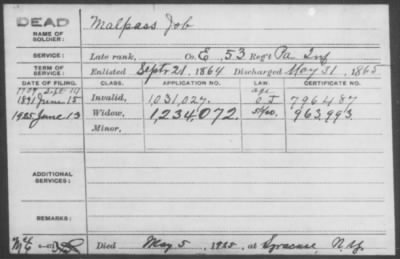 DEAD
NAME OF SOLDIER: Malpass Job
SERVICE: Late rank, Co. E, 53 Reg't Pa Inf
TERM OF SERVICE: Enlisted Septr 21, 1864 Discharged May 31, 1865
DATE OF FILING. CLASS. APPLICATION NO. LAW. CERTIFICATE NO.
1891 June 15 Invalid, 1,031,027. 796487
1925 June 13 Widow, 1,234,072. 963,993
Minor,
ADDITIONAL SERVICES:
REMARKS:
Died May 5, 1925, at Syracuse, N.Y.